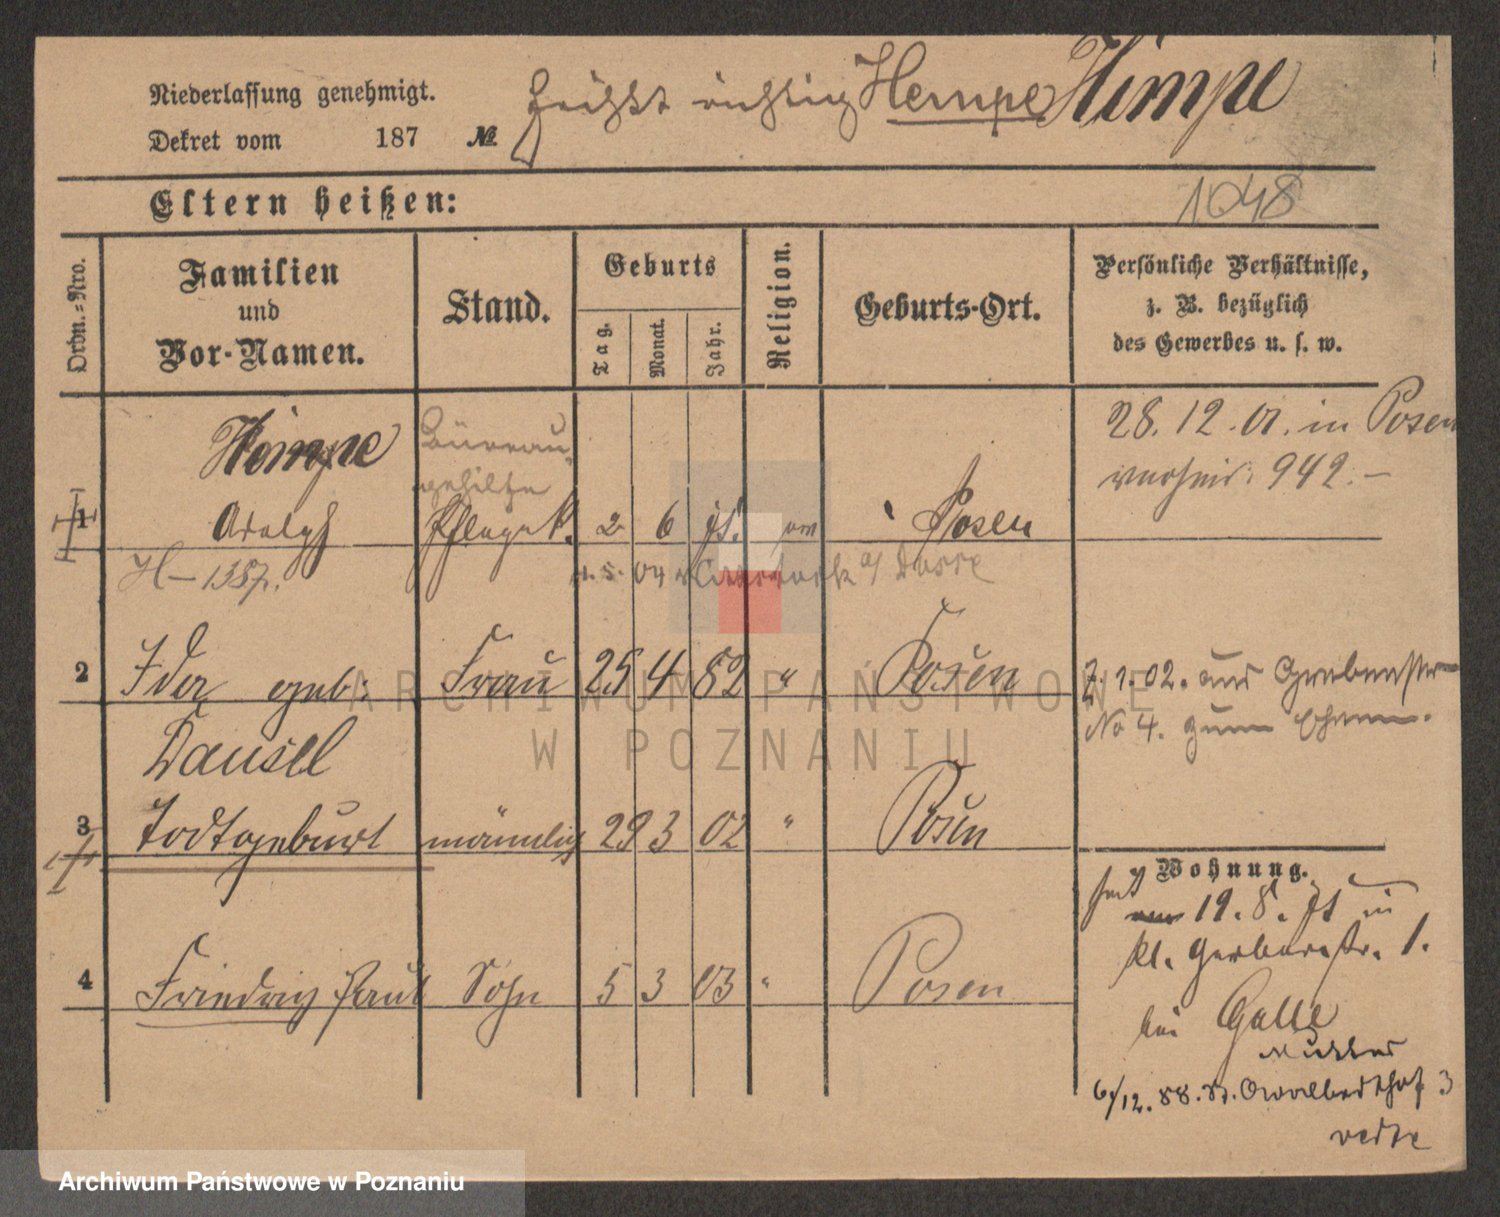 Niederlassung genehmigt.
heißt richtig Hempe Himpe
Dekret vom 187 №
Eltern heißen:
1048
Ordn.-Nro.
Familien und Vor-Namen.
Stand.
Geburts
Tag. Monat. Jahr.
Religion.
Geburts-Ort.
Persönliche Verhältnisse,
z. B. bezüglich
des Gewerbes u. s. w.
Hempe
Büreau-
gehilfe
28. 12. 01. in Posen
942. –
1 Adolph Pflegek. 2 6 Posen
H – 1387.
04 a/ Dosse
2 Ida geb: Frau 25 4 82 " Posen
2. 1. 02. aus Grabenstr
No 4. zum
Dausel
3 Todtgeburt männlich 29 3 02 " Posen
Wohnung.
seit 19. 8. in
kl. Gerberstr. 1.
4 Friedrich Paul Sohn 5 3 03 " Posen
bei Galle
Mutter
6/12. 88. St. Adalberthof 3
verte
ARCHIWUM PAŃSTWOWE
W POZNANIU
Archiwum Państwowe w Poznaniu